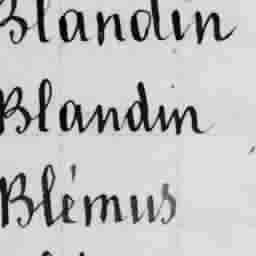 Blandin
Blandin
Blémus